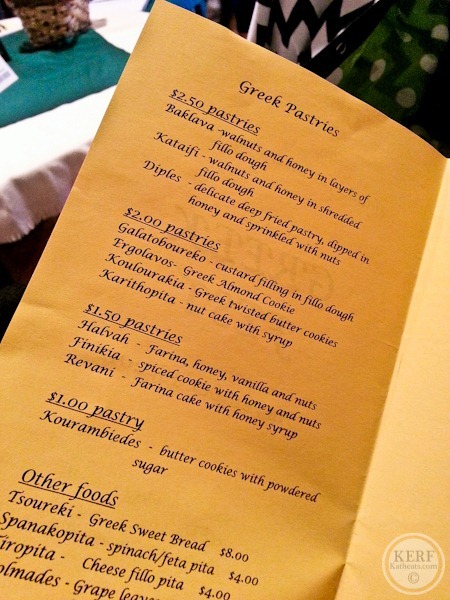 Greek Pastries
$2.50 pastries
Baklava -walnuts and honey in layers of
fillo dough
Kataifi - walnuts and honey in shredded
fillo dough
Diples - delicate deep fried pastry, dipped in
honey and sprinkled with nuts
$2.00 pastries
Galatoboureko - custard filling in fillo dough
Ergolavos- Greek Almond Cookie
Koulourakia - Greek twisted butter cookies
Karithopita - nut cake with syrup
$1.50 pastries
Halvah - Farina, honey, vanilla and nuts
Finikia - spiced cookie with honey and nuts
Revani - Farina cake with honey syrup
$1.00 pastry
Kourambiedes - butter cookies with powdered
sugar
Other foods
Tsoureki - Greek Sweet Bread $8.00
Spanakopita - spinach/feta pita $4.00
iropita - Cheese fillo pita $4.00
olmades - Grape leave
KERF
Katheats.com
©